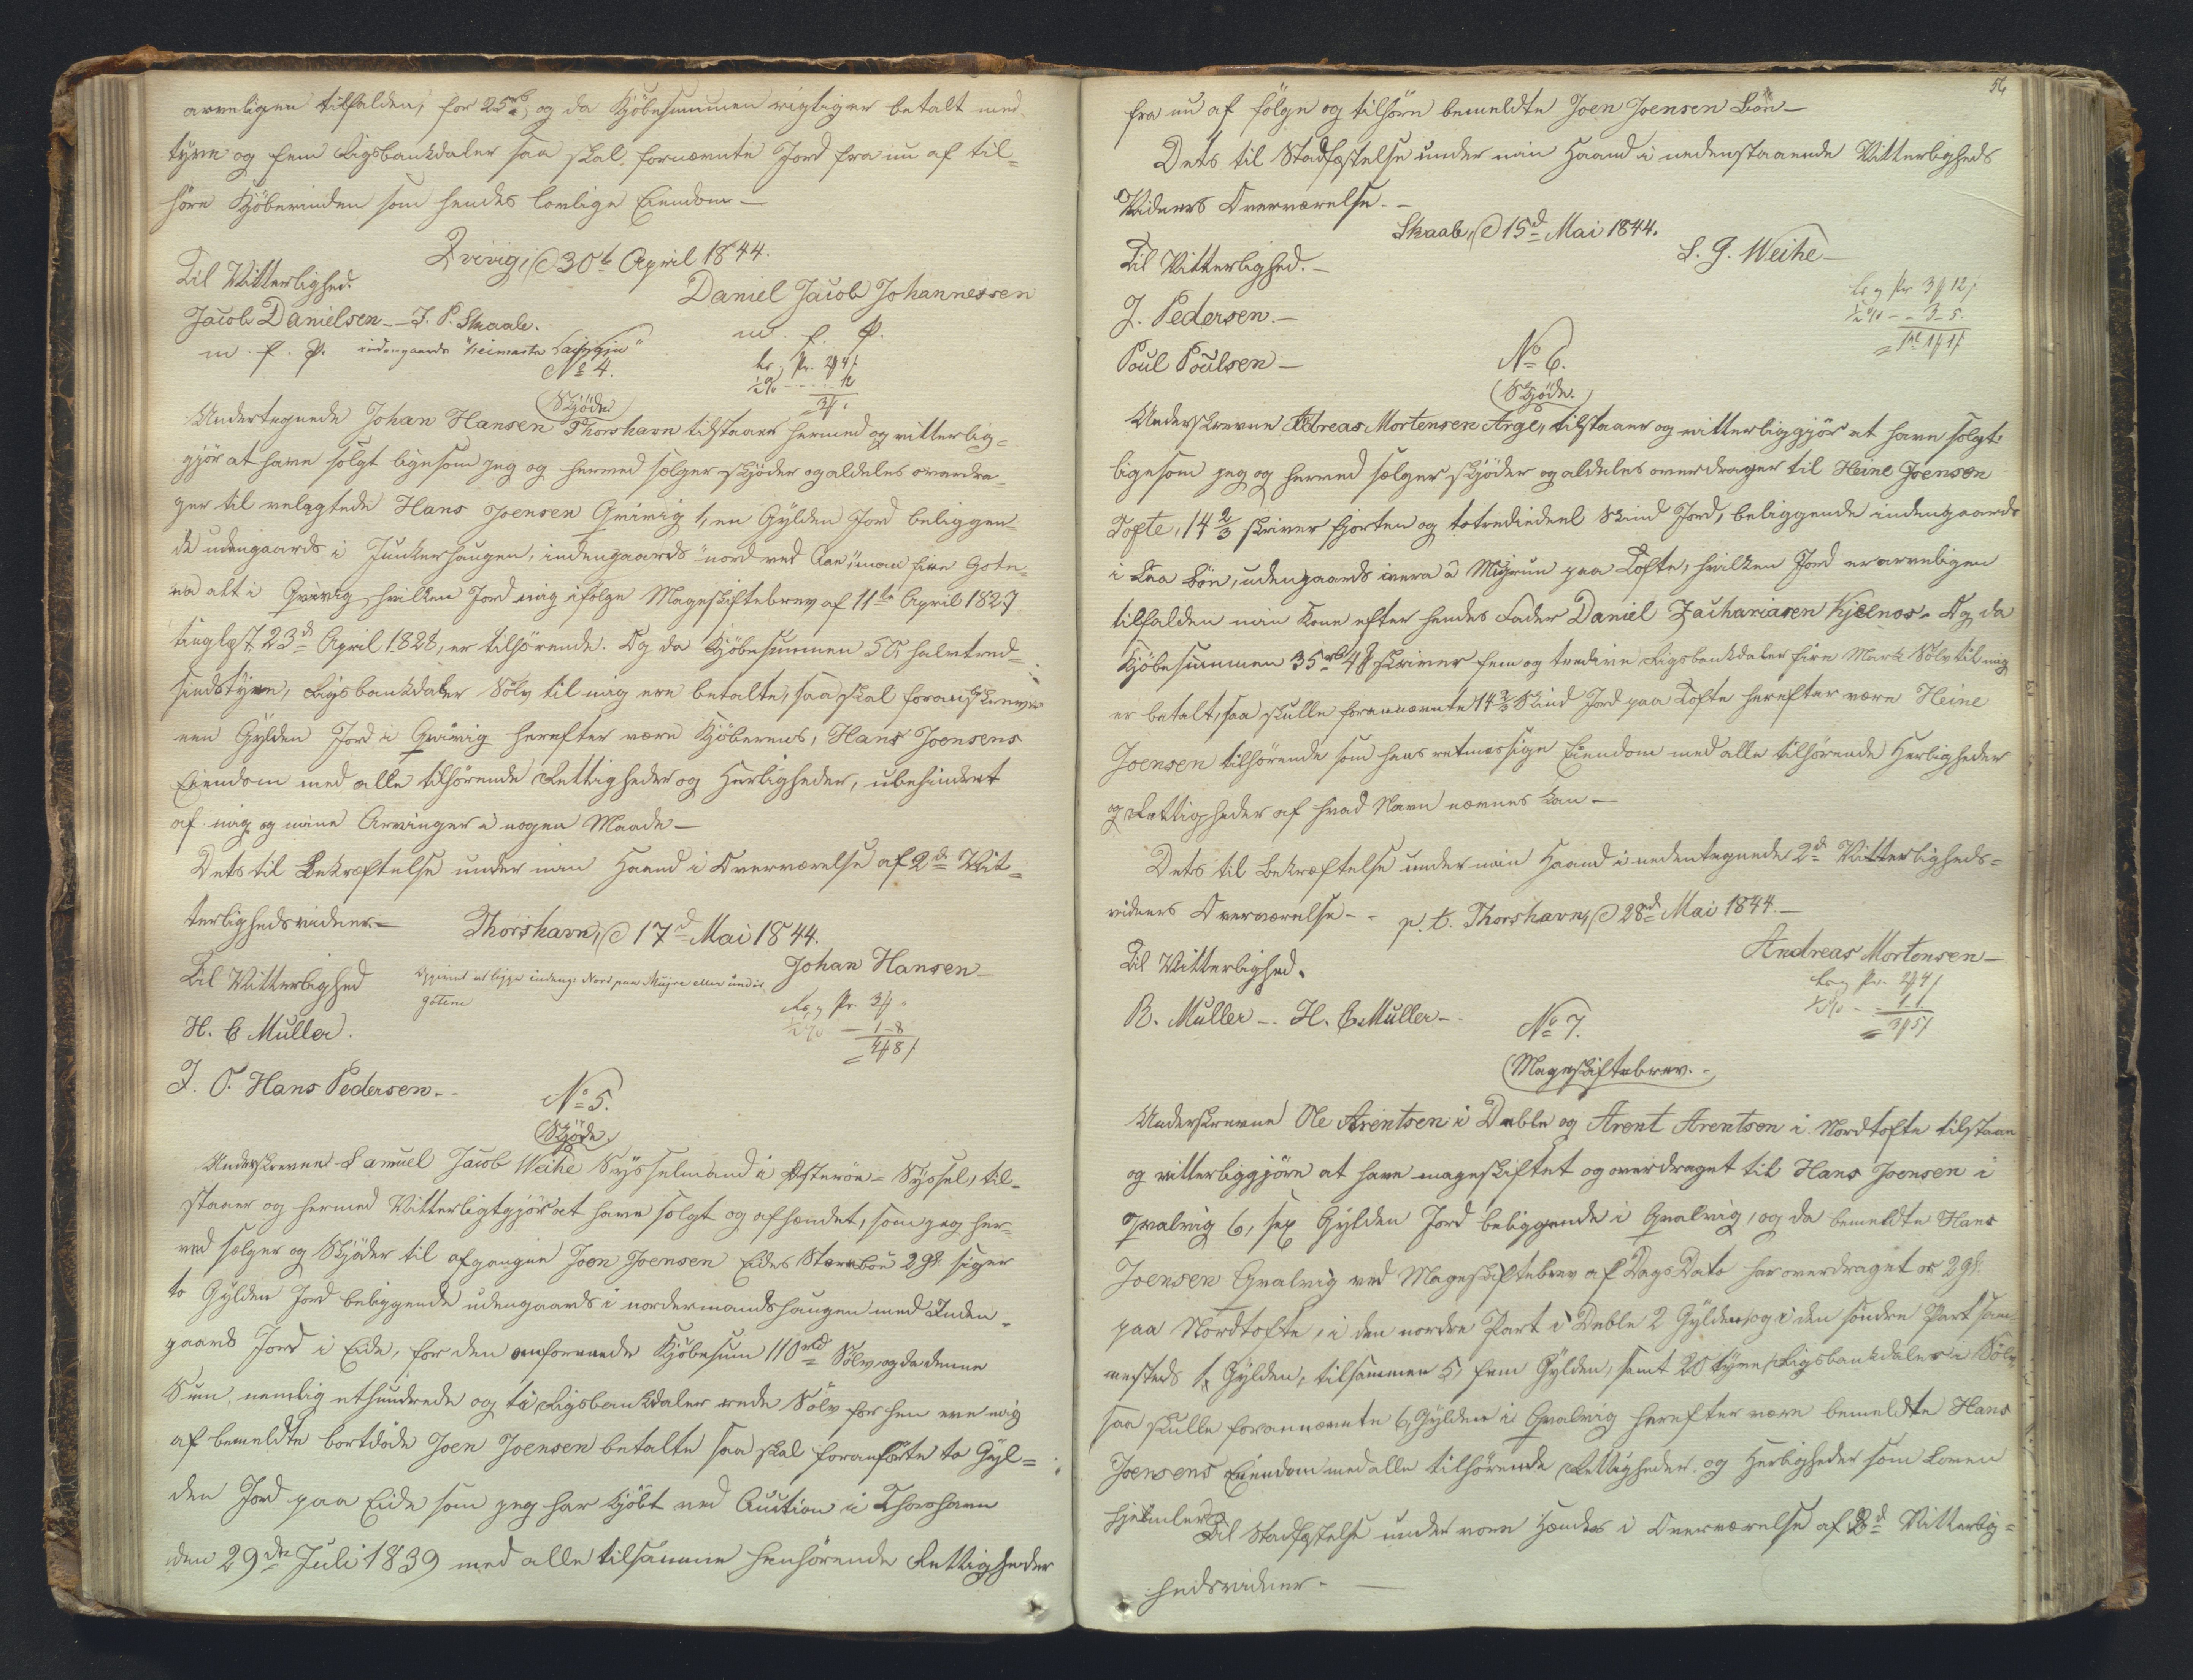 arveligen tilfalden, for 25 rb, og da Kjöbesummen rigtigen betalt med
tyve og fem Rigsbankdaler saa skal fornævnte Jord fra nu af til=
höre Kjöberinden som hendes lovlige Eiendom —
Qvivig, d 30te April 1844.
Til Vitterlighed.
Daniel Jacob Johannessen
Jacob Danielsen — J. P. Skaale.
m. f. P.
m. f. P. indengaards "heimasta
No 4.
Skjöde
Undertegnede Johan Hansen Thorshavn tilstaaer hermed og vitterlig=
gjör at have solgt ligesom jeg og herved sælger skjöder og aldeles overdra=
ger til velagtede Hans Joensen Qvivig 1, en Gylden Jord beliggen=
de udengaards i Junkerhaugen, indengaards "nord ved Aae",
alt i Qvivig, hvilken Jord mig ifölge Mageskiftebrev af 11te April 1827
tinglæst 23d April 1828, er tilhörende. Og da Kjöbesummen 50 halvtred=
sindstyve, Rigsbankdaler Sölv til mig ere betalte, saa skal foranskrevne
een Gylden Jord i Qvivig herefter være Kjöberens, Hans Joensens
Eiendom med alle tilhörende Rettigheder og Herligheder, ubehindret
af mig og mine Arvinger i nogen Maade —
Dets til Bekræftelse under min Haand i Overværelse af 2de Vit=
terlighedsvidner. —
Thorshavn, d 17d Mai 1844.
Til Vitterlighed
Johan Hansen —
H. C Müller.
J. O. Hans Pedersen. -
No 5.
Skjöde.
Underskrevne Samuel Jacob Weihe Sysselmand i Österöe=Syssel, til=
staaer og hermed Vitterligtgjör at have solgt og afhændet, som jeg her=
ved sælger og Skjöder til afgangne Joen Joensen Eides Stervboe 2 gl. siger
to Gylden Jord beliggende udengaards i nordermandshaugen med Inden=
gaards Jord i Eide, for den omforenede Kjöbesum 110 rbd Sölv, og da denne
Sum, nemlig ethundrede og ti Rigsbankdaler rede Sölv forhen ere mig
af bemeldte bortdöde Joen Joensen betalte saa skal foranförte to Gyl=
den Jord paa Eide som jeg har kjöbt ved Auction i Thorshavn
den 29de Juli 1839 med alle tilsamme henhörende Rettigheder
56
fra nu af fölge og tilhöre bemeldte Joen Joensen Boe —
Dets til Stadfæstelse under min Haand i nedenstaaende Vitterligheds
Vidners Overværelse. —
Skaale, d 15d Mai 1844.
Til Vitterlighed. —
S. J. Weihe —
J. Pedersen. —
Poul Poulsen —
No 6.
Skjöde.
Underskrevne Andreas Mortensen Arge, tilstaaer og vitterliggjör at have solgt
ligesom jeg og herved sælger skjöder og aldeles overdrager til Heine Joensen
Tofte, 14 2/3 skriver fjorten og totrediedeel Skind Jord, beliggende indengaards
i Laa Böe, udengaards paa Tofte, hvilken Jord er arveligen
tilfalden min Kone efter hendes Fader Daniel Zachariasen Kjelnes. Og da
Kjöbesummen 35 rb 4 # skriver fem og tredive Rigsbankdaler fire Mark Sölv til mig
er betalt, saa skulle forannævnte 14 2/3 Skind Jord paa Tofte herefter være Heine
Joensen tilhörende som hans retmæssige Eiendom med alle tilhörende Herligheder
og Rettigheder af hvad Navn nævnes kan —
Dets til Bekræftelse under min Haand i nedentegnede 2d Vitterligheds=
vidners Overværelse - -
p. t. Thorshavn, d 28d Mai 1844. —
Til Vitterlighed.
Andreas Mortensen —
R. Müller — H. C. Müller —
No 7.
Mageskiftebrev. -
Underskrevne Ole Arentsen i Deble og Arent Arentsen i Nordtofte tilstaae
og vitterliggjöre at have mageskiftet og overdraget til Hans Joensen i
Qvalvig 6, sex Gylden Jord beliggende i Qvalvig, og da bemeldte Hans
Joensen Qvalvig ved Mageskiftebrev af Dags Dato har overdraget os 2 gl.
paa Nordtofte, i den nordre Part i Deble 2 Gylden, og i den söndre Part sam=
mesteds 1 Gylden, tilsammen 5, fem Gylden, samt 20 tyve Rigsbankdaler i Sölv
saa skulle forannævnte 6, Gylden i Qvalvig herefter være bemeldte Hans
Joensens Eiendom med alle tilhörende Rettigheder og Herligheder som Loven
hjemler.
Til Stadfæstelse under vore Hænder i Overværelse af 2d Vitterlig=
hedsvidner. —